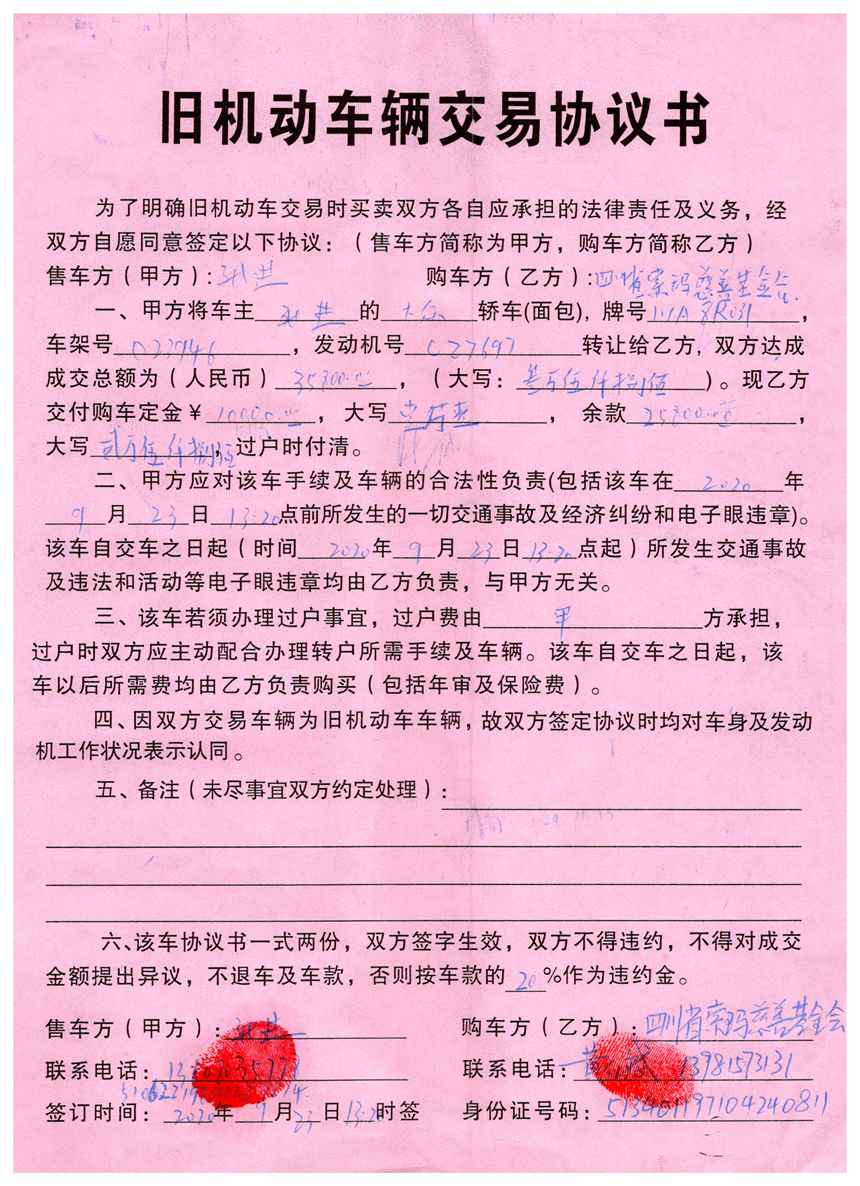 旧机动车辆交易协议书
为了明确旧机动车交易时买卖双方各自应承担的法律责任及义务，经
双方自愿同意签定以下协议：（售车方简称为甲方，购车方简称乙方）
售车方（甲方）： 购车方（乙方）：四川省索玛慈善基金会
一、甲方将车主 的 大众 轿车(面包)，牌号 ，
车架号 023946 ，发动机号 C27697 转让给乙方, 双方达成
成交总额为（人民币） 35800.00 ，（大写：叁万伍仟捌佰 ）。现乙方
交付购车定金￥ 10000.00 ， 大写 ， 余款 25800.00 ，
大写 贰万伍仟捌佰 ，过户时付清。
二、甲方应对该车手续及车辆的合法性负责(包括该车在 2020 年
9 月 23 日 13:20 点前所发生的一切交通事故及经济纠纷和电子眼违章)。
该车自交车之日起（时间 2020 年 9 月 23 日 13:20 点起）所发生交通事故
及违法和活动等电子眼违章均由乙方负责，与甲方无关。
三、该车若须办理过户事宜，过户费由 甲 方承担，
过户时双方应主动配合办理转户所需手续及车辆。该车自交车之日起，该
车以后所需费均由乙方负责购买（包括年审及保险费）。
四、因双方交易车辆为旧机动车车辆，故双方签定协议时均对车身及发动
机工作状况表示认同。
五、备注（未尽事宜双方约定处理）：
六、该车协议书一式两份，双方签字生效，双方不得违约，不得对成交
金额提出异议，不退车及车款，否则按车款的 20 %作为违约金。
售车方（甲方）： 购车方（乙方）：四川省索玛慈善基金会
联系电话： 联系电话： 13981573131
签订时间： 2020 年 9 月 23 日 13:20 时签 身份证号码：513401197104240811